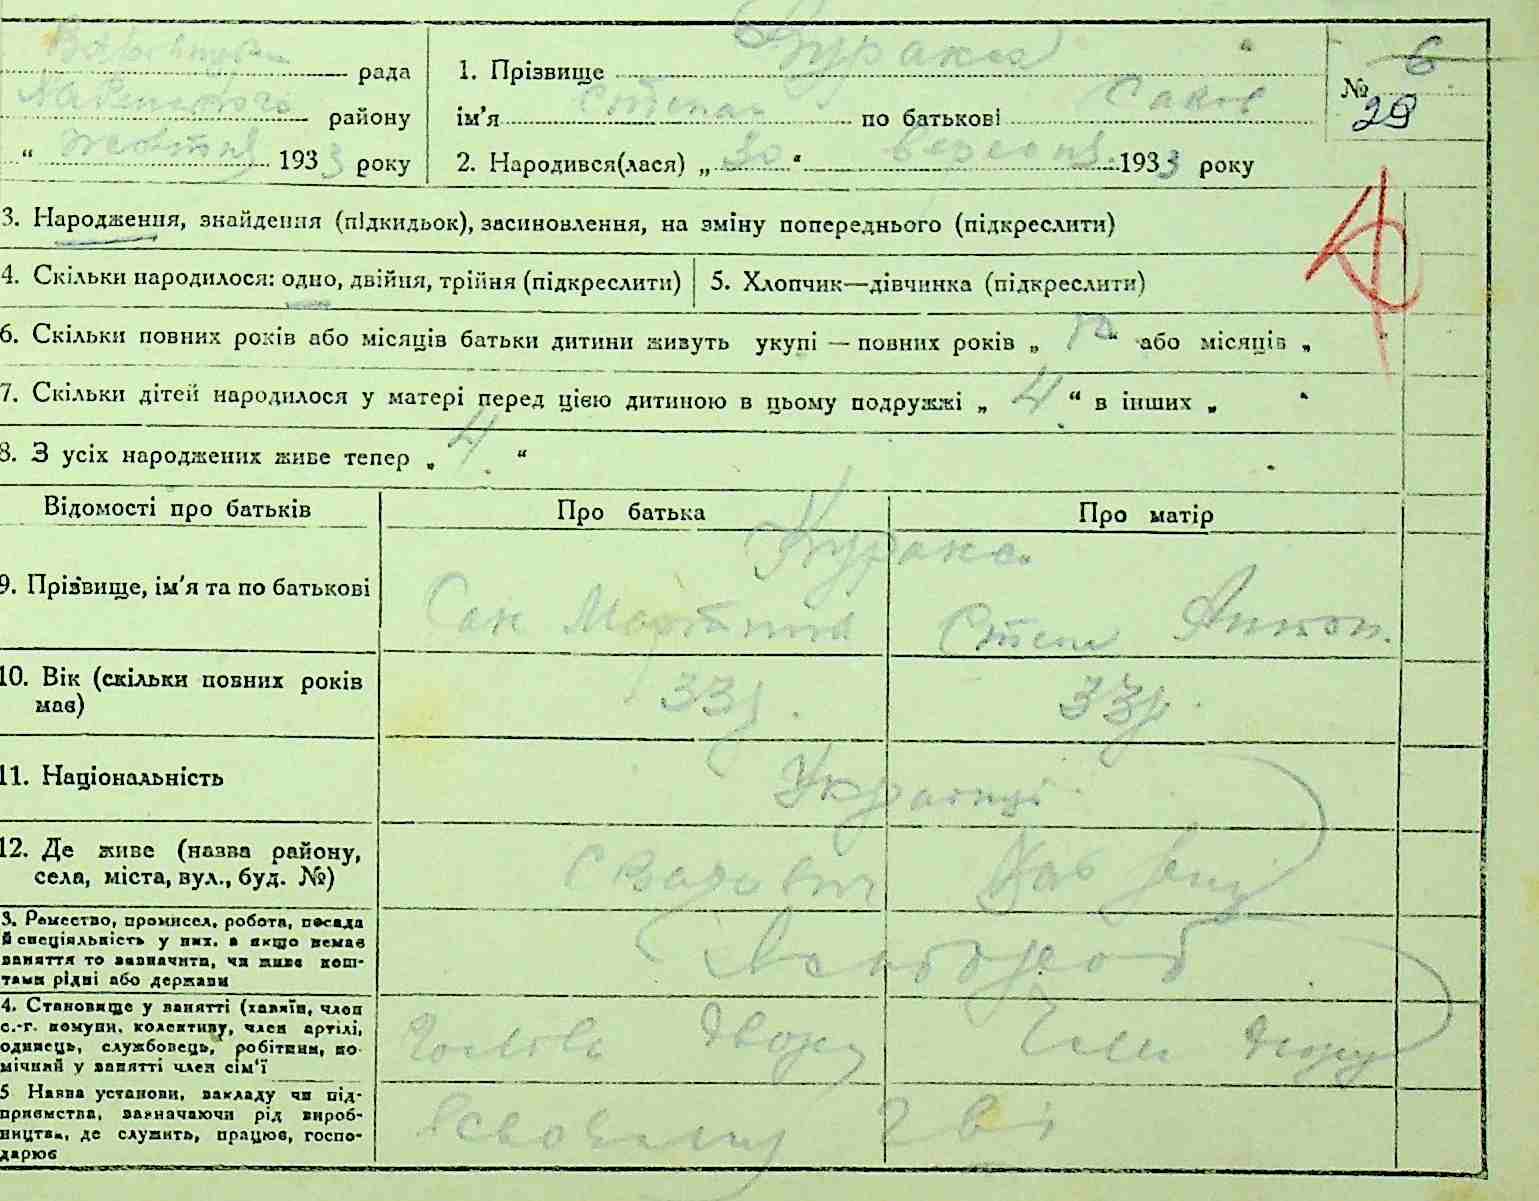 рада
району
" жовтня 1933 року
1. Прізвище Курака
ім'я Степан по батькові Саков
2. Народився(лася) „ 30 " вересня 1933 року
№ 6
29
3. Народження, знайдення (підкидьок), засиновлення, на зміну попереднього (підкреслити)
4. Скільки народилося: одно, двійня, трійня (підкреслити)
5. Хлопчик—дівчинка (підкреслити)
6. Скільки повних років або місяців батьки дитини живуть укупі — повних років „ " або місяців „ "
7. Скільки дітей народилося у матері перед цією дитиною в цьому подружжі „ 4 " в інших „ "
8. З усіх народжених живе тепер „ 4 "
Відомості про батьків
Про батька
Про матір
9. Прізвище, ім'я та по батькові
Курака
Сак
Антон.
10. Вік (скільки повних років
має)
33р.
33р.
11. Національність
Українці
12. Де живе (назва району,
села, міста, вул., буд. №)
3. Ремество, промисел, робота, посада
й спеціяльність у них, а якщо немає
заняття то зазначити, чи живе кош-
тами рідні або держави
4. Становище у занятті (хазяїн, член
с.-г. комуни, колективу, член артілі,
одинець, службовець, робітник, по-
мічний у занятті член сім'ї
Голова двору
Член двору
5 Назва установи, закладу чи під-
приємства, зазначаючи рід вироб-
ництва, де служить, працює, госпо-
дарює